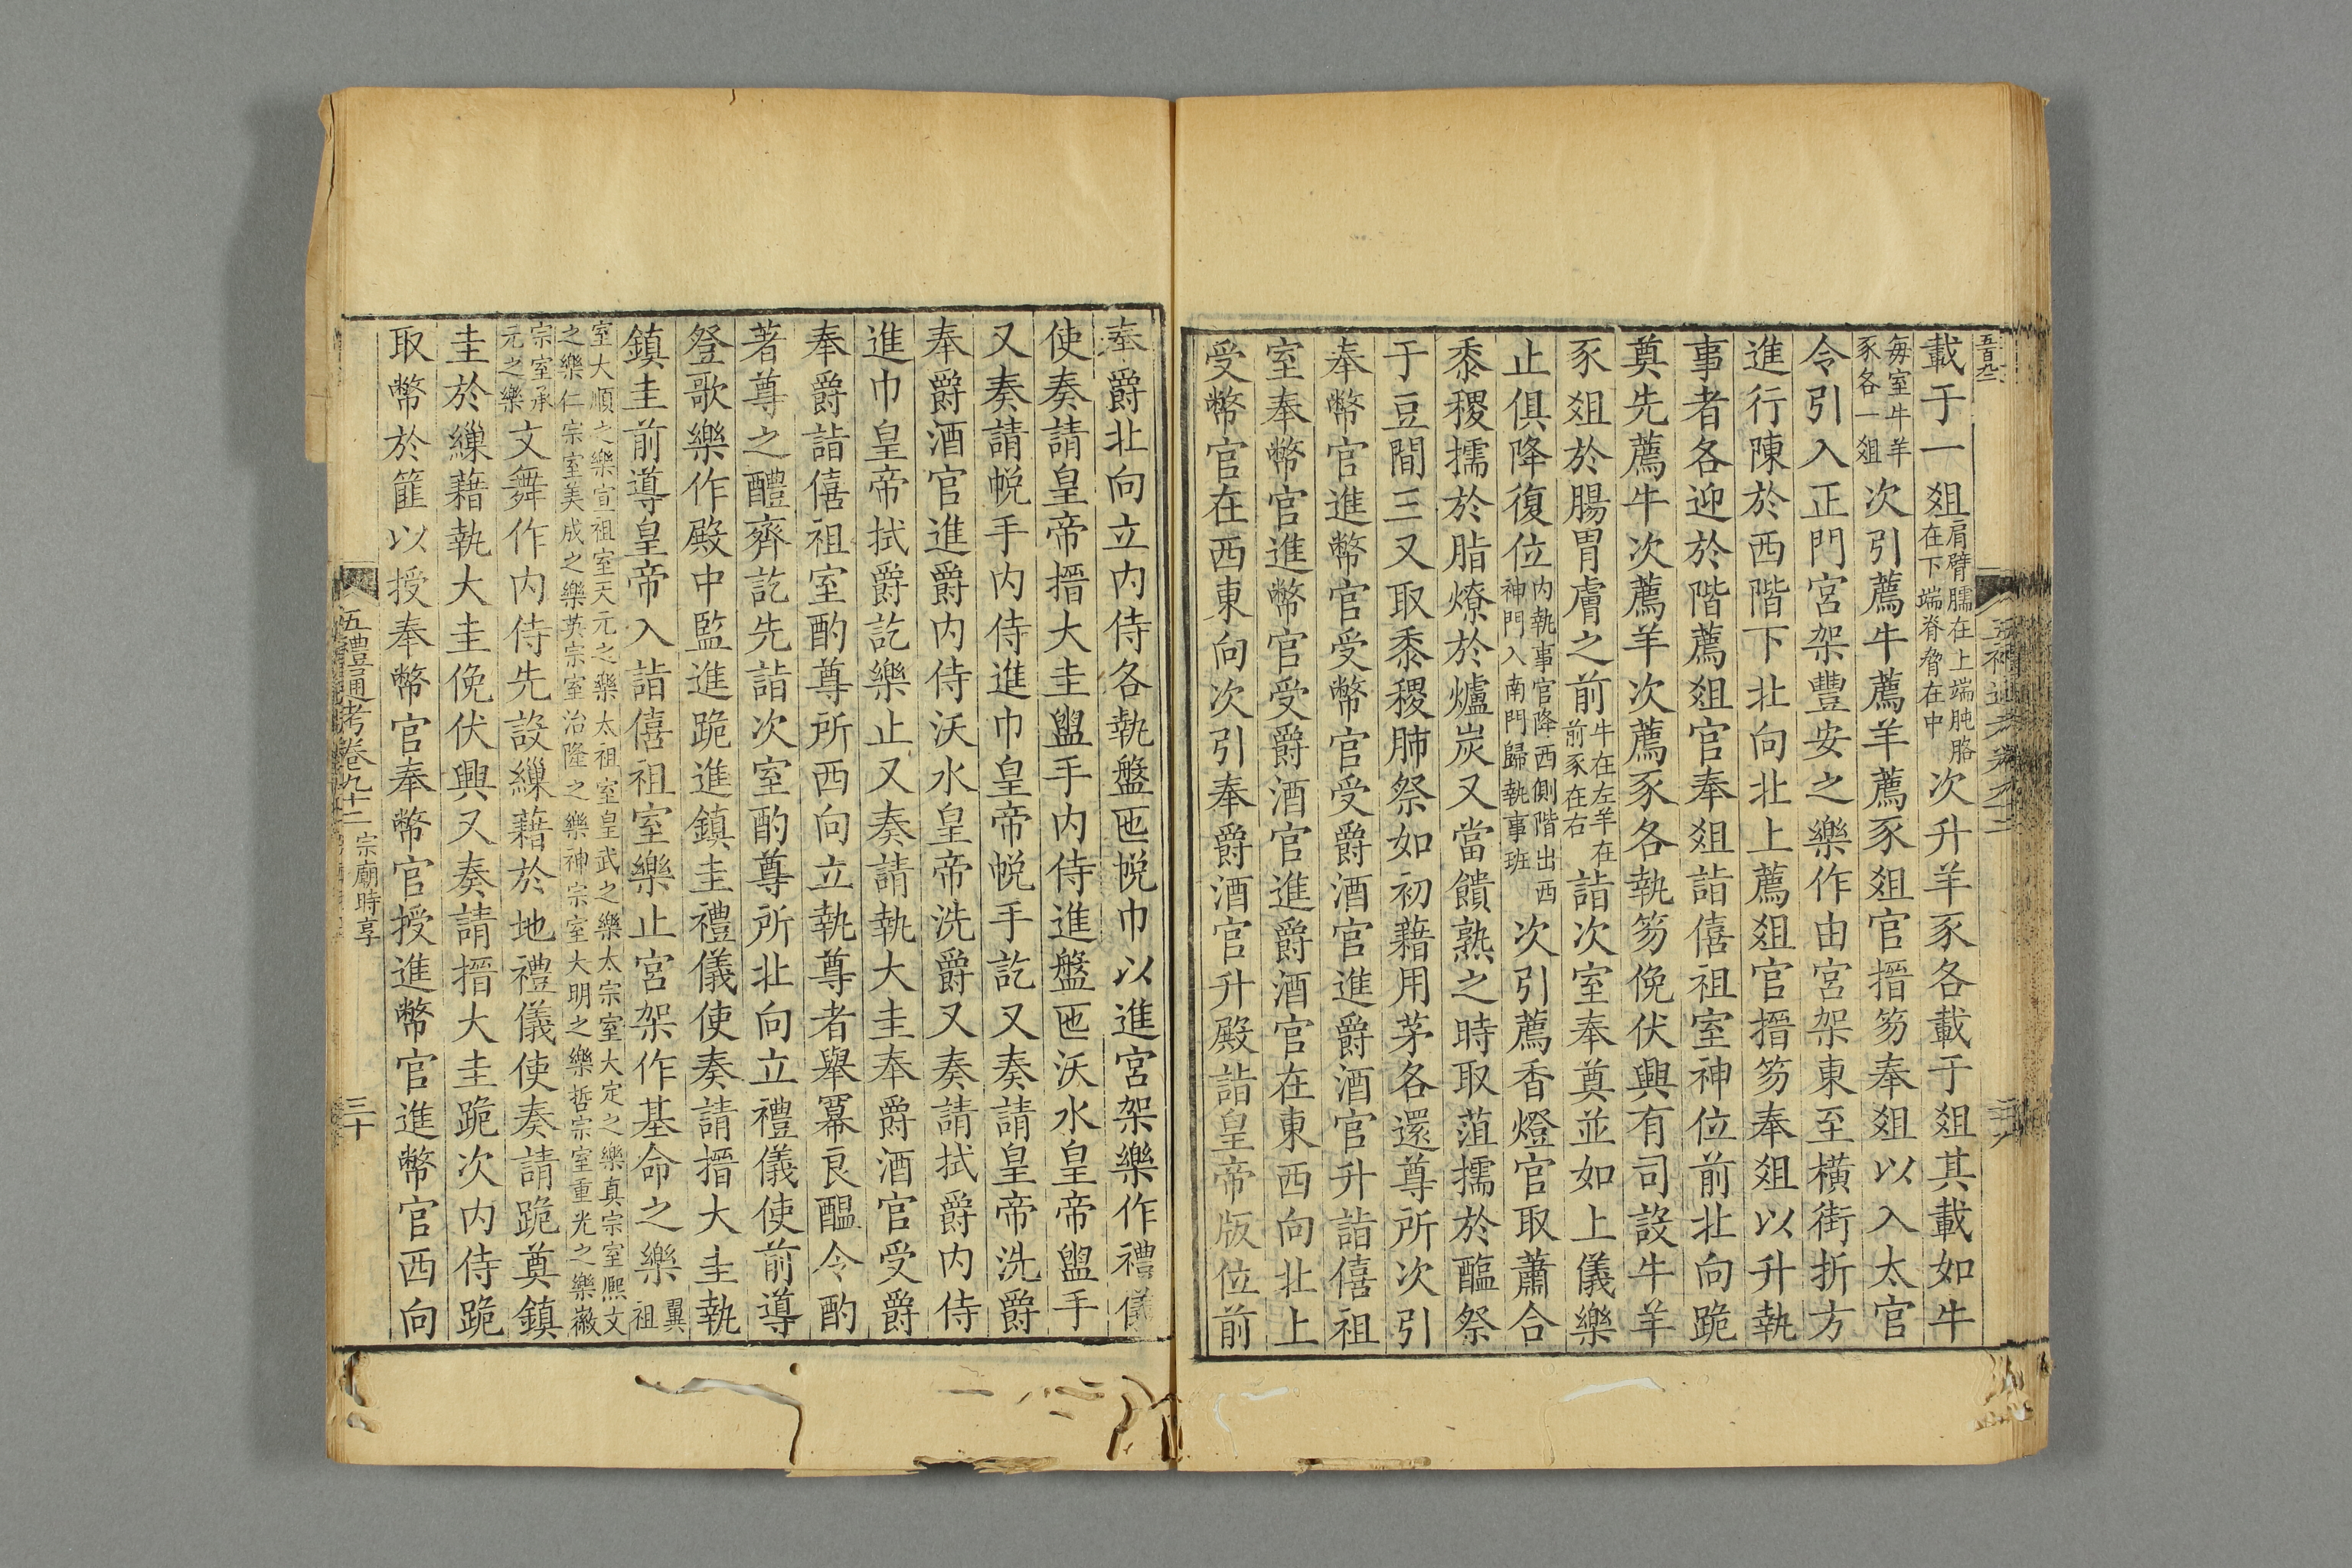 載于一爼肩臂臑在上端肫胳在下端脊脅在中次升羊豕各載于爼其載如牛
毎室牛羊豕各一爼次引薦牛薦羊薦豕爼官搢笏奉爼以入太官
令引入正門宮架豐安之樂作由宮架東至橫街折方
進行陳於西階下北向北上薦爼官搢笏奉爼以升執
事者各迎於階薦爼官奉爼詣僖祖室神位前北向跪
奠先薦牛次薦羊次薦豕各執笏俛伏興有司設牛羊
豕爼於腸胃膚之前牛在左羊在前豕在右詣次室奉奠並如上儀樂
止俱降復位内執事官降西側階出西神門入南門歸執事班次引薦香燈官取蕭合
黍稷擩於脂燎於爐炭又當饋熟之時取菹擩於醢祭
于豆間三又取黍稷肺祭如初藉用茅各還尊所次引
奉幣官進幣官受幣官受爵酒官進爵酒官升詣僖祖
室奉幣官進幣官受爵酒官進爵酒官在東西向北上
受幣官在西東向次引奉爵酒官升殿詣皇帝版位前
奉爵北向立内侍各執盤匜帨巾以進宮架樂作禮儀
使奏請皇帝搢大圭盥手内侍進盤匜沃水皇帝盥手
又奏請帨手内侍進巾皇帝帨手訖又奏請皇帝洗爵
奉爵酒官進爵内侍沃水皇帝洗爵又奏請拭爵内侍
進巾皇帝拭爵訖樂止又奏請執大圭奉爵酒官受爵
奉爵詣僖祖室酌尊所西向立執尊者舉冪良醞令酌
著尊之醴齊訖先詣次室酌尊所北向立禮儀使前導
登歌樂作殿中監進跪進鎮圭禮儀使奏請搢大圭執
鎮圭前導皇帝入詣僖祖室樂止宮架作基命之樂翼祖
室大順之樂宣祖室天元之樂太祖室皇武之樂太宗室大定之樂真宗室熈文之樂仁宗室美成之樂英宗室治隆之樂神宗室大明之樂哲宗室重光之樂徽
宗室承元之樂文舞作内侍先設繅藉於地禮儀使奏請跪奠鎮
圭於繅藉執大圭俛伏興又奏請搢大圭跪次内侍跪
取幣於篚以授奉幣官奉幣官授進幣官進幣官西向
五禮通考卷九十二 宗廟時享 三十